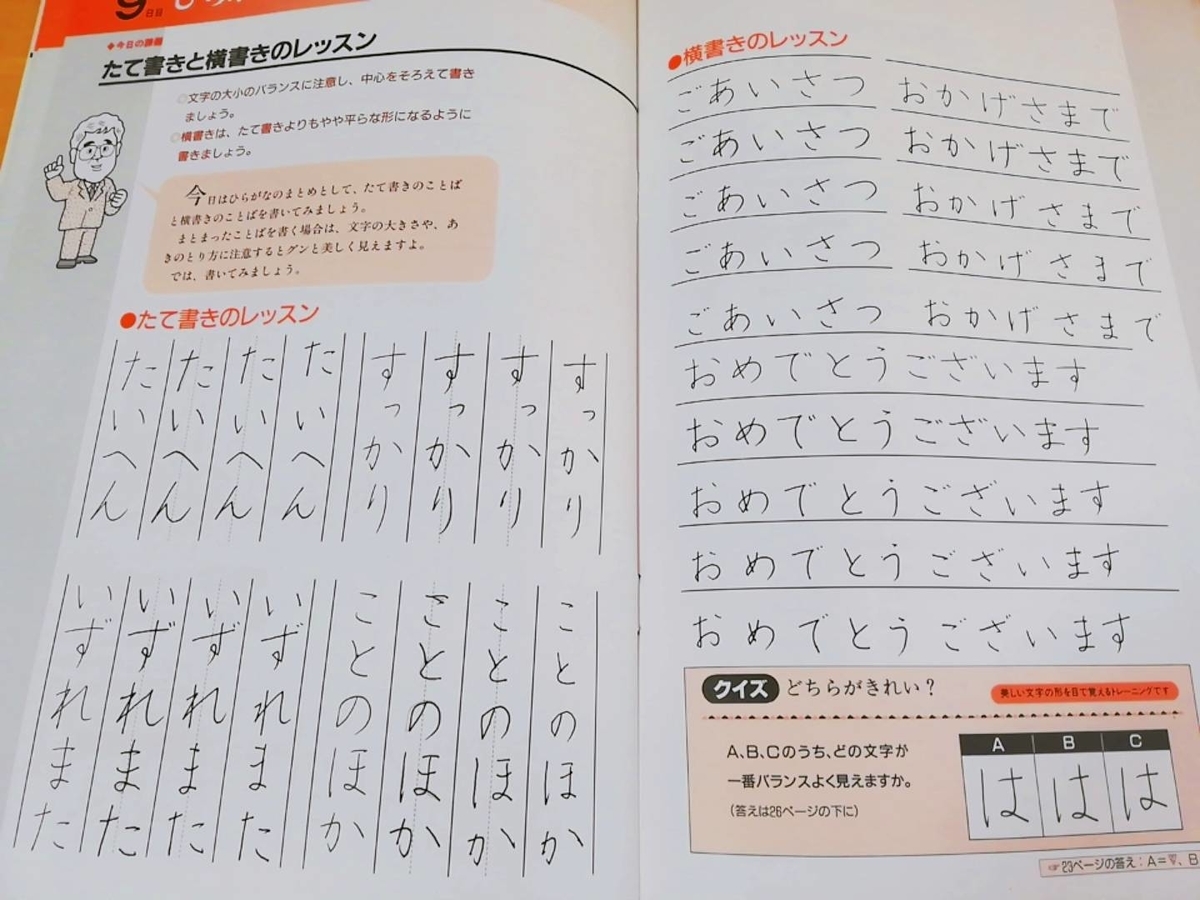 9日目
◆今日の課題
たて書きと横書きのレッスン
◎文字の大小のバランスに注意し、中心をそろえて書き
ましょう。
◎横書きは、たて書きよりもやや平らな形になるように
書きましょう。
今日はひらがなのまとめとして、たて書きのことば
と横書きのことばを書いてみましょう。
まとまったことばを書く場合は、文字の大きさや、あ
きのとり方に注意するとグンと美しく見えますよ。
では、書いてみましょう。
●たて書きのレッスン
すっかり
すっかり
すっかり
すっかり
たいへん
たいへん
たいへん
たいへん
ことのほか
ことのほか
ことのほか
ことのほか
いずれまた
いずれまた
いずれまた
いずれまた
●横書きのレッスン
ごあいさつ おかげさまで
ごあいさつ おかげさまで
ごあいさつ おかげさまで
ごあいさつ おかげさまで
ごあいさつ おかげさまで
おめでとうございます
おめでとうございます
おめでとうございます
おめでとうございます
おめでとうございます
クイズ どちらがきれい?
美しい文字の形を目で覚えるトレーニングです
A、B、Cのうち、どの文字が
一番バランスよく見えますか。
(答えは26ページの下に)
A B C
は は は
☞23ページの答え:A=
、B